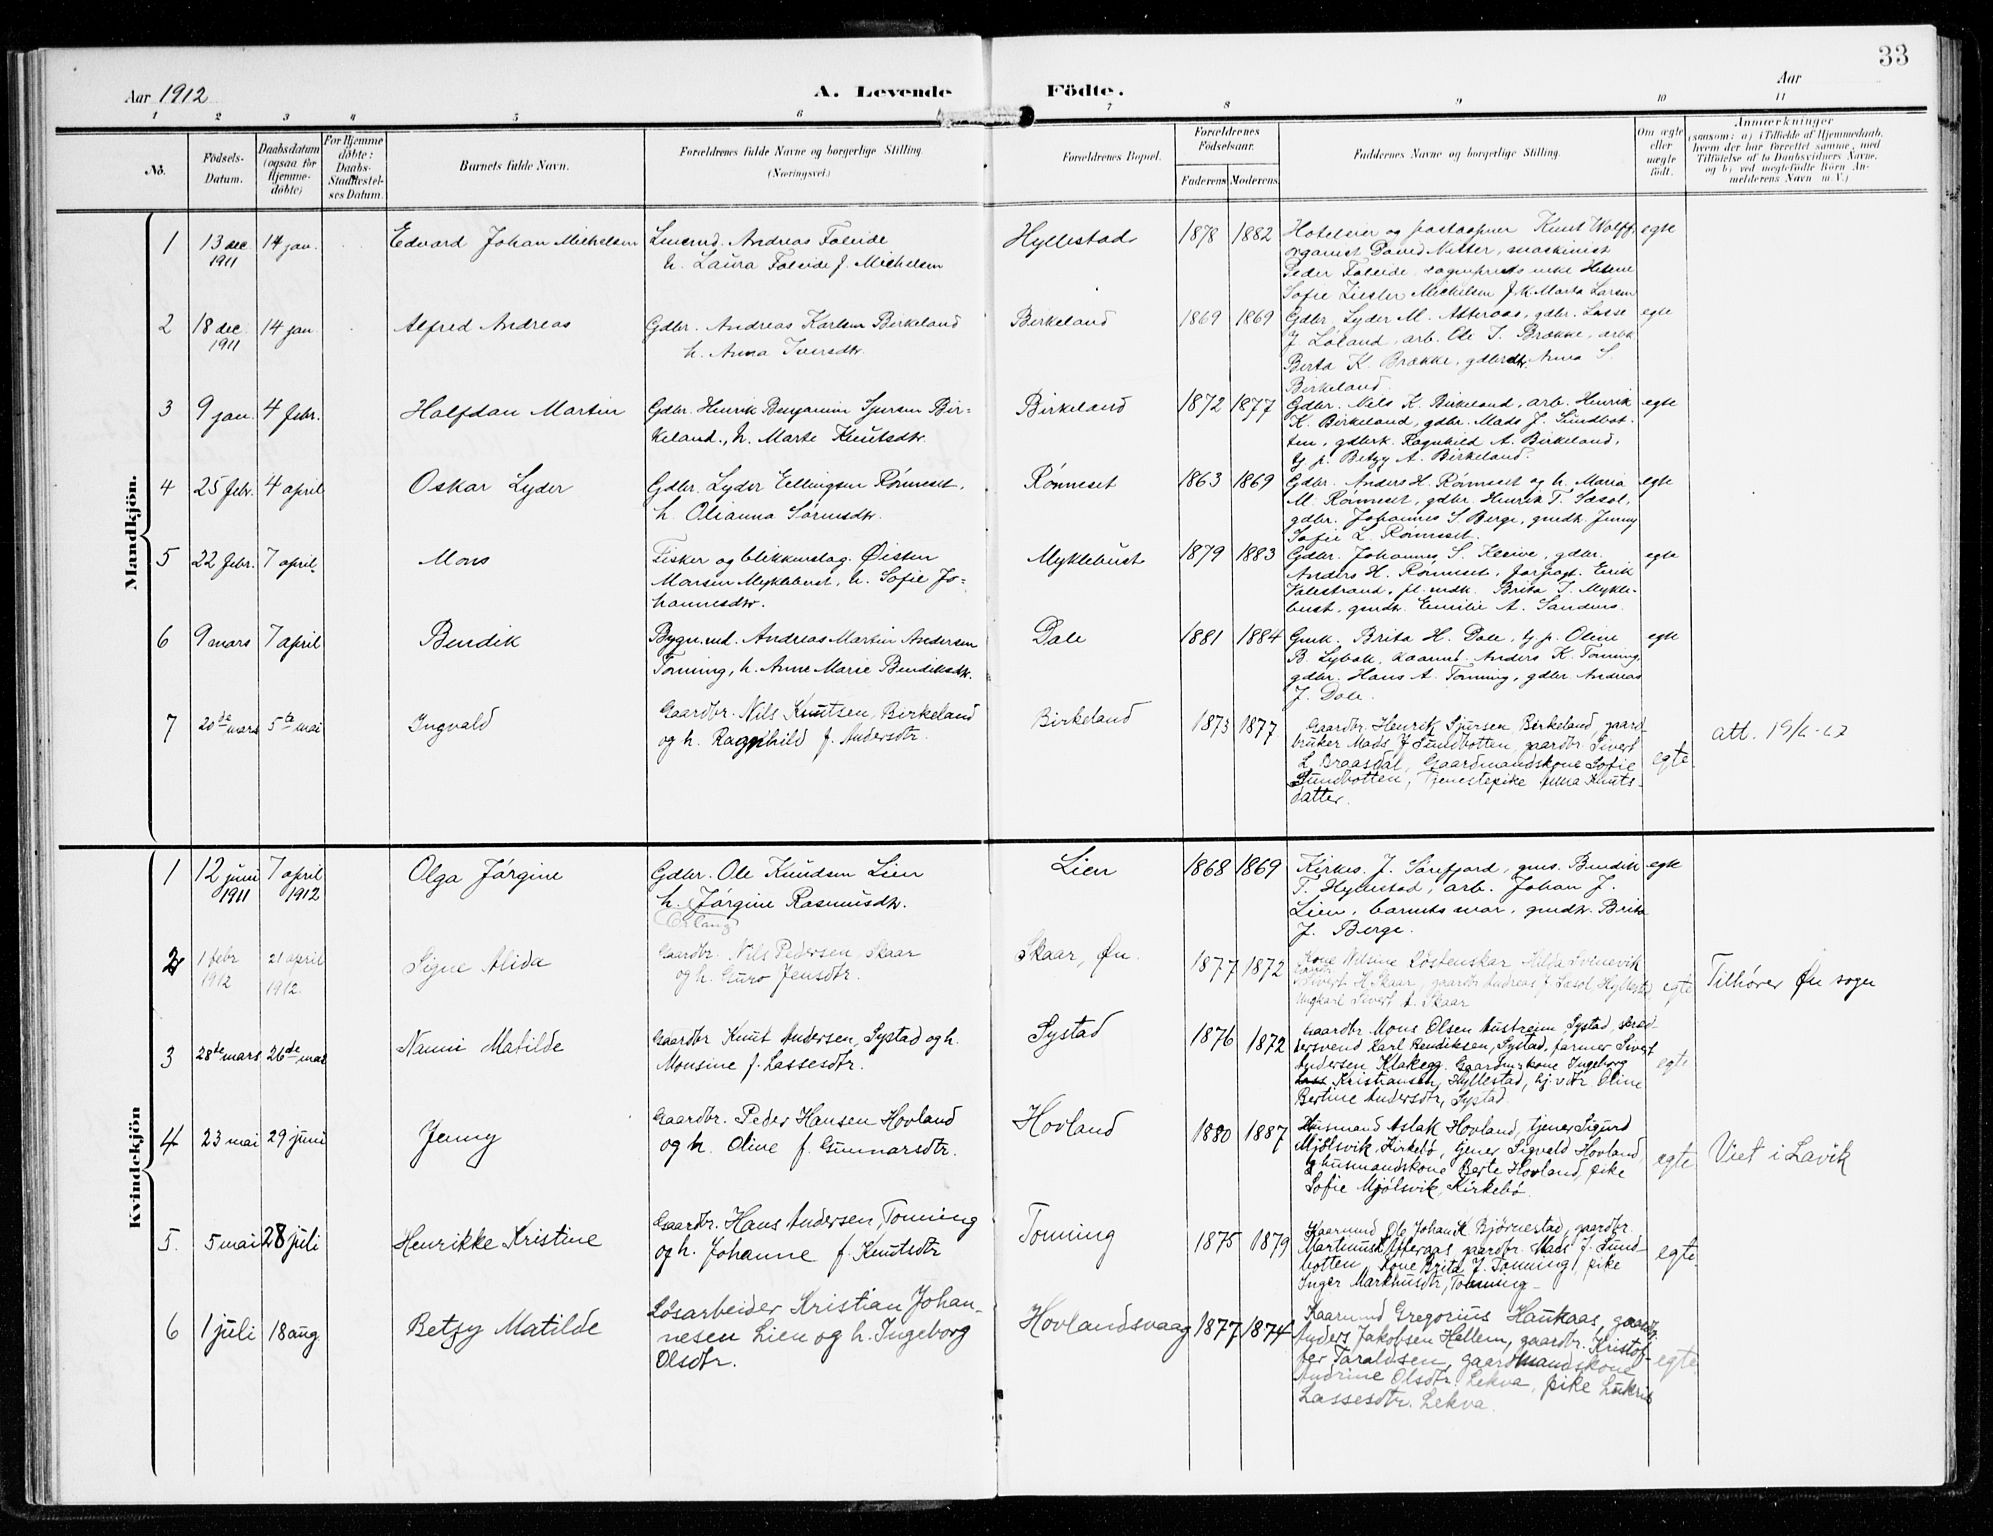 33
Aar 1912
A. Levende
Födte.
Aar
1 2 3 4 5 6 7 8 9 10 11
No.
Födsels-
Datum.
Daabsdatum
(ogsaa for
Hjemme-
döbte)
For Hjemme
döbte:
Daabs-
Stadfæstel-
ses Datum.
Barnets fulde Navn.
Forældrenes fulde Navne og borgerlige Stilling.
(Næringsvei.)
Forældrenes Bopæl.
Forældrenes
Födselsaar.
Faderens. Moderens.
Faddernes Navne og borgerlige Stilling.
Om ægte
eller
uægte
födt.
Anmærkninger
(saasom: a) i Tilfælde af Hjemmedaab,
hvem der har forrettet samme, med
Tilföielse af to Daabsvidners Navne,
og b) ved uægtefödte Börn An-
melderens Navn m. V.)
Mandkjön.
1 13 dec 1911 14 jan. Edvard Johan Michelsen
Andreas Foleide
h. Laura Foleide f. Michelsen
Hyllestad 1878 1882
Hotelejer og postaapner Knut Wolff
organist David Nitter, maskinist
Peder Foleide, sogneprests enke Helene
Sofie Ziesler Michelsen f.k Marta Larsen
egte
2 18 dec 1911 14 jan Alfred Andreas
Gdbr. Andreas Karlsen Birkeland
h. Anna Iversdtr.
Birkeland 1869 1869
Gdbr. Lyder M. Atteraas, gdbr. Lasse
J Løland, arb. Ole I. Brække, arbk
Berta K. Brække, gdbrdtr. Anna S.
Birkeland.
egte
3 9 jan. 4 febr. Halfdan Martin
Gdbr. Henrik Benjamin Sjursen Bir-
keland., h. Marte Knutsdtr.
Birkeland 1872 1877
Gdbr. Nils K. Birkeland, arb. Henrik
K. Birkeland, gdbr. Mads J. Sundbot-
ten, gdbrk. Ragnhild A. Birkeland,
tj. p. Betzy A. Birkeland.
egte
4 25 febr. 4 april Oskar Lyder
Gdbr. Lyder Ellingsen Rønneset,
h. Oleanna Sørensdtr.
Rønneset 1863 1869
Gdbr. Anders H. Rønneset og h. Maria
M. Rønneset, gdbr. Henrik T. Sæsol,
gdbr. Johannes S. Berge, gmdtr. Jenny
Sofie L. Rønneset.
egte
5 22 febr. 7 april Mons
Fisker og blikkenslag. Øisten
Monsen Myklebust, h. Sofie Jo-
hannesdtr.
Myklebust 1879 1883
Gdbr. Johannes S. Risnes, gdbr.
Anders H. Rønneset, forpagt. Eirik
Valestrand, pl.mdk. Brita I. Mykle-
bust, gmdtr. Emilie A. Sandnes.
egte
6 9 mars 7 april Bendik
Bygn.md. Andreas Martin Andersen
Tonning, h. Anne Marie Bendiksdtr.
Dale 1881 1884
Gmk. Brita H. Dale, tj. p. Oline
B. Sybak, kaarmd. Anders K. Tonning,
gdbr. Hans A. Tonning, gdbr. Andreas
J. Dale.
egte
7 20de mars 5te mai Ingvald
Gaardbr. Nils Knutsen, Birkeland
og h. Ragnhild f. Andersdtr.
Birkeland 1873 1877
Gaardbr. Henrik Sjursen Birkeland, gaard-
bruker Mads J Sundbotten, gaardbr. Sivert
L Braasdal, Gaardmandskone Sofie
Sundbotten, Tjenestepike Anna Knuts-
datter.
egte
att. 19/6-62
Kvindekjön
1 12 juni 1911 7 april 1912 Olga Jørgine
Gdbr. Ole Knudsen Lien
h. Jørgine Rasmusdtr.
Lien 1868 1869
Kirkes. J. Sørefjord, gms. Bendik
T. Hyllestad, arb. Johan J.
Lien, barnets mor, gmdtr. Brita
J. Berge
egte
2 1 febr 1912 21 april 1912. Signe Alida
Gaardbr. Nils Pedersen, Skaar
og h. Guro Jensdtr.
Skaar, Øn. 1877 1872
Kone Nilsine Løstenskar
Sivert H. Skaar, gaardbr Andreas J. Sæsol, Hyllestad
ungkarl Sivert A. Skaar
egte
Tilhører Øn sogn
3 28de mars 26de mai Nanni Matilde
Gaardbr Knut Andersen, Systad og h.
Monsine f. Lassesdtr.
Systad 1876 1872
Gaardbr Mons Olsen Austreim Systad, skræd-
dersvend Karl Bendiksen, Systad, farmer Sivert
Andersen Klakegg. Gaardmskone Ingeborg
Kristiansen, Hyllestad, tj. Oline
Bertine Andersdtr, Systad.
egte
4 23 mai 29 juni Jenny
Gaardbr. Peder Hansen Hovland
og h. Oline f. Gunnarsdtr.
Hovland 1880 1887
Husmand Aslak Hovland, tjener Sigurd
Mjølsvik, Kirkebø, tjener Sigvald Hovland,
husmandskone Berte Hovland, pike
Sofie Mjølsvik, Kirkebø.
egte
Viet i Lavik
5. 5 mai 28 juli Henrikke Kristine
Gaardbr. Hans Andersen, Tonning
og h. Johanne f. Knutsdtr
Tonning 1875 1879
Kaarmand Ole Johan K Bjørnestad, gaardbr.
Martinus Atteraas, gaardbr. Mads J. Sund-
botten, Kone Brita J. Tonning, pike
Inger Markhusdtr, Tonning
egte.
6 1 juli 18 aug. Betzy Matilde
Løsarbeider Kristian Johan-
nesen Lien og h. Ingeborg
Olsdtr.
Hovlandsvaag 1877 1874
Kaarmand Gregorius Haukaas, gaardbr.
Anders Jakobsen Hellem, gaardbr. Kristof-
fer Taraldsen, gaardmandskone
Andrine Olsdtr. Lekva, pike Lukris
Lassesdtr. Lekva.
egte.